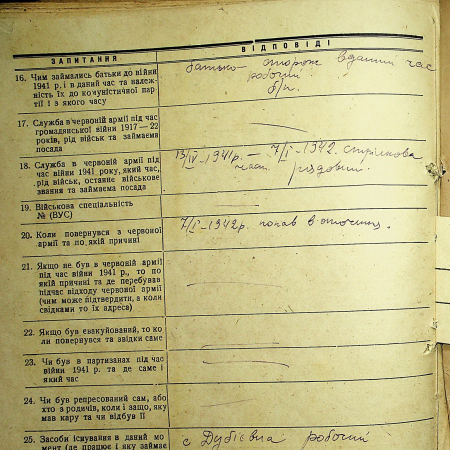 ЗАПИТАННЯ
ВІДПОВІДІ
16. Чим займались батьки до війни
1941 р. і в даний час та належ-
ність їх до комуністичної пар-
тії і з якого часу
батько сторож в даний час
робочий
б/п.
17. Служба в червоній армії під час
громадянської війни 1917—22
років, рід військ та займаєма
посада
18. Служба в червоній армії під
час війни 1941 року, який час,
рід військ, останнє військове
звання та займаєма посада
13/IV-1941р — 7/I-1942. стрілкова
част. рядовий.
19. Військова спеціальність
№ (ВУС)
20. Коли повернувся з червоної
армії та по якій причині
7/I-1942р. попав в оточення.
21. Якщо не був в червоній армії
під час війни 1941 р., то по
якій причині та де перебував
підчас відходу червоної армії
(чим може підтвердити, а коли
свідками то їх адреса)
22. Якщо був евакуйований, то ко
ли повернувся та звідки саме
23. Чи був в партизанах під час
війни 1941 р. та де саме і
який час
24. Чи був репресований сам, або
хто з родичів, коли і защо, яку
мав кару та чи відбув її
25. Засоби існування в даний мо
мент (де працює і яку займає
с Дубієвка робочий